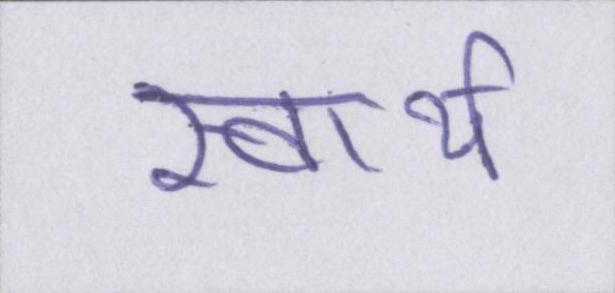 स्वार्थ